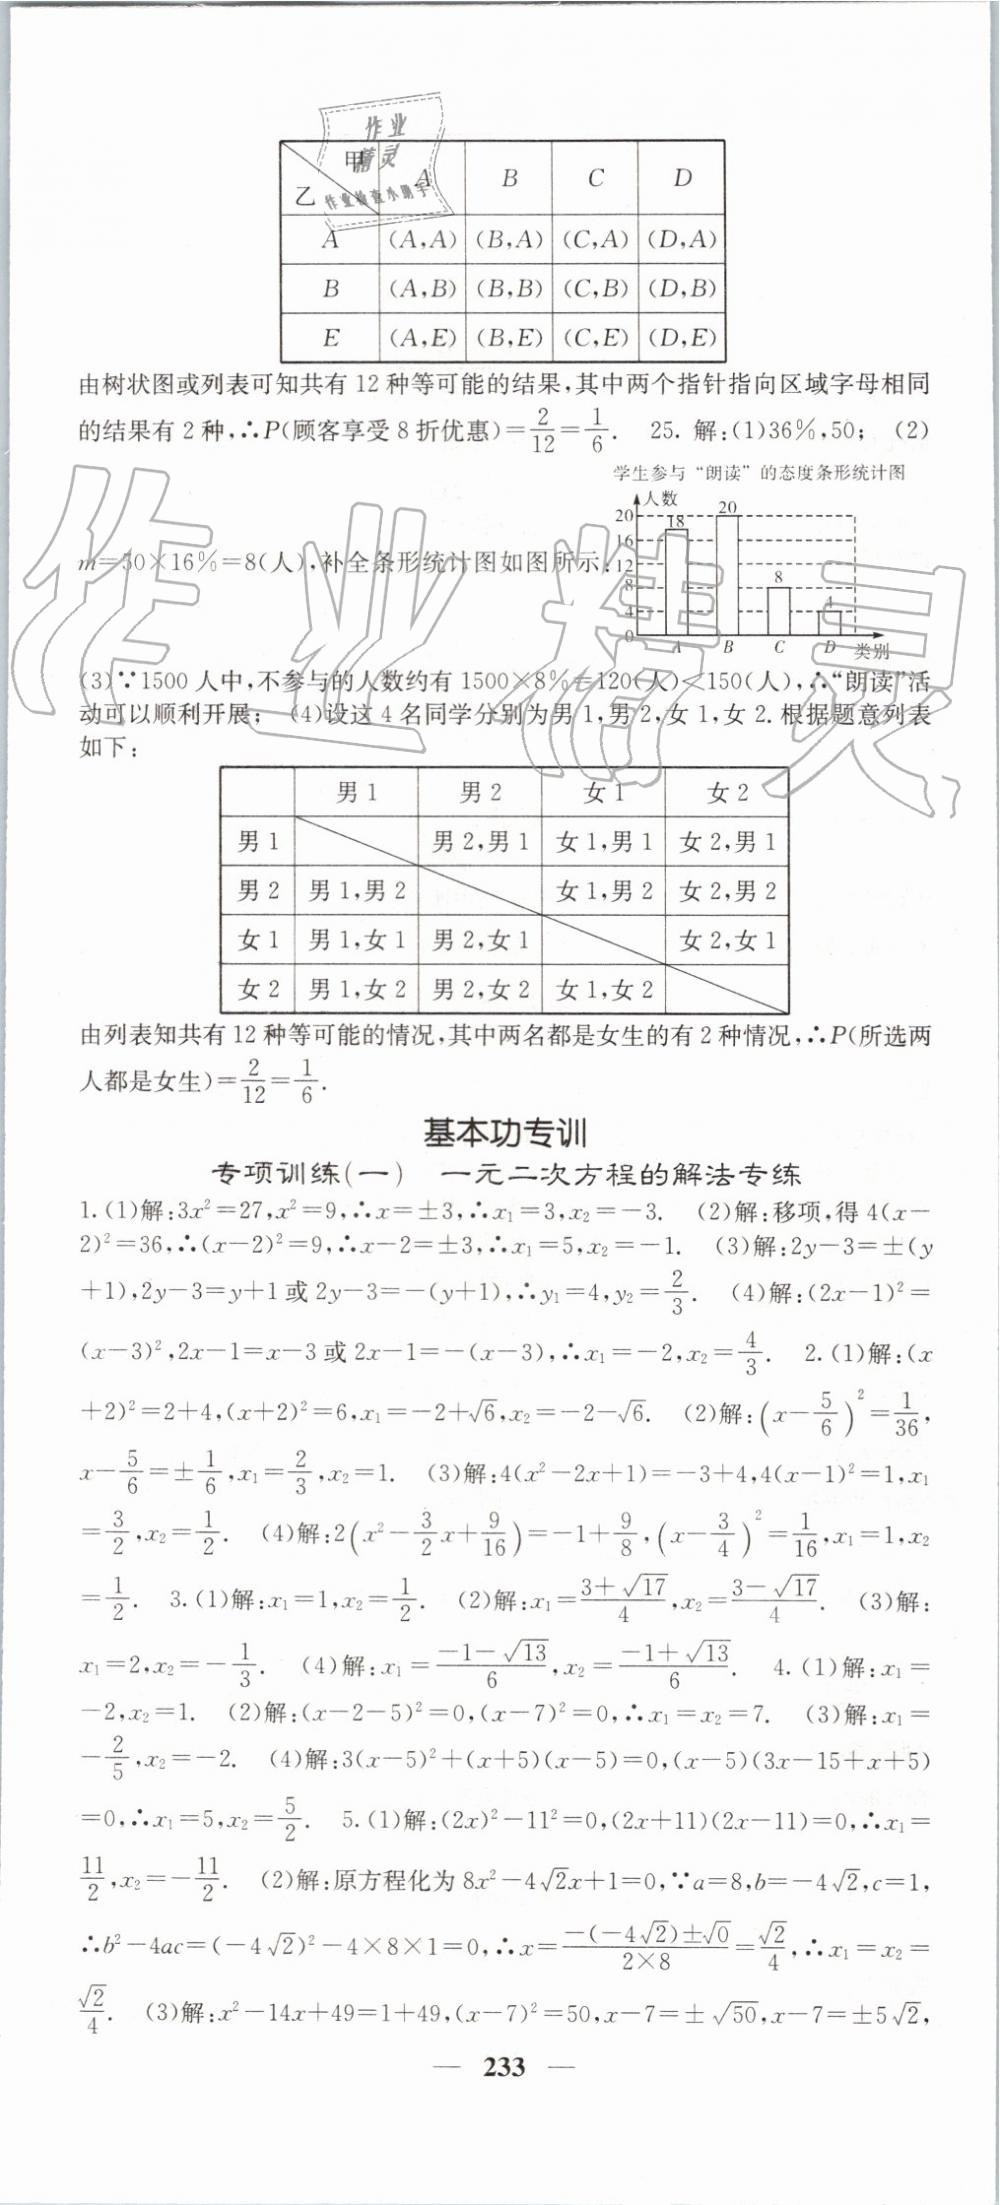 作业
精灵
作业检查小助手
甲 A B C D
乙
A (A,A) (B,A) (C,A) (D,A)
B (A,B) (B,B) (C,B) (D,B)
E (A,E) (B,E) (C,E) (D,E)
由树状图或列表可知共有 12 种等可能的结果,其中两个指针指向区域字母相同
的结果有 2 种,∴P(顾客享受 8 折优惠)=2/12=1/6. 25. 解:(1)36%,50; (2)
学生参与“朗读”的态度条形统计图
人数
20 16 12 8 4 0
18 20 8 4
A B C D 类别
m=50×16%=8(人),补全条形统计图如图所示:
(3)∵1500 人中,不参与的人数约有 1500×8%=120(人)<150(人),∴“朗读”活
动可以顺利开展; (4)设这 4 名同学分别为男 1,男 2,女 1,女 2. 根据题意列表
如下:
男 1 男 2 女 1 女 2
男 1 男 2,男 1 女 1,男 1 女 2,男 1
男 2 男 1,男 2 女 1,男 2 女 2,男 2
女 1 男 1,女 1 男 2,女 1 女 2,女 1
女 2 男 1,女 2 男 2,女 2 女 1,女 2
由列表知共有 12 种等可能的情况,其中两名都是女生的有 2 种情况,∴P(所选两
人都是女生)=2/12=1/6.
基本功专训
专项训练(一) 一元二次方程的解法专练
1. (1)解:3x²=27,x²=9,∴x=±3,∴x₁=3,x₂=-3. (2)解:移项,得 4(x-
2)²=36,∴(x-2)²=9,∴x-2=±3,∴x₁=5,x₂=-1. (3)解:2y-3=±(y
+1),2y-3=y+1 或 2y-3=-(y+1),∴y₁=4,y₂=2/3. (4)解:(2x-1)²=
(x-3)²,2x-1=x-3 或 2x-1=-(x-3),∴x₁=-2,x₂=4/3. 2. (1)解:(x
+2)²=2+4,(x+2)²=6,x₁=-2+√6,x₂=-2-√6. (2)解:(x-5/6)²=1/36,
x-5/6=±1/6,x₁=2/3,x₂=1. (3)解:4(x²-2x+1)=-3+4,4(x-1)²=1,x₁
=3/2,x₂=1/2. (4)解:2(x²-3/2x+9/16)=-1+9/8,(x-3/4)²=1/16,x₁=1,x₂
=1/2. 3. (1)解:x₁=1,x₂=1/2. (2)解:x₁=(3+√17)/4,x₂=(3-√17)/4. (3)解:
x₁=2,x₂=-1/3. (4)解:x₁=(-1-√13)/6,x₂=(-1+√13)/6. 4. (1)解:x₁=
-2,x₂=1. (2)解:(x-2-5)²=0,(x-7)²=0,∴x₁=x₂=7. (3)解:x₁=
-2/5,x₂=-2. (4)解:3(x-5)²+(x+5)(x-5)=0,(x-5)(3x-15+x+5)
=0,∴x₁=5,x₂=5/2. 5. (1)解:(2x)²-11²=0,(2x+11)(2x-11)=0,∴x₁=
11/2,x₂=-11/2. (2)解:原方程化为 8x²-4√2x+1=0,∵a=8,b=-4√2,c=1,
∴b²-4ac=(-4√2)²-4×8×1=0,∴x=(-(-4√2)±√0)/(2×8)=√2/4,∴x₁=x₂=
√2/4. (3)解:x²-14x+49=1+49,(x-7)²=50,x-7=±√50,x-7=±5√2,
— 233 —
作业精灵